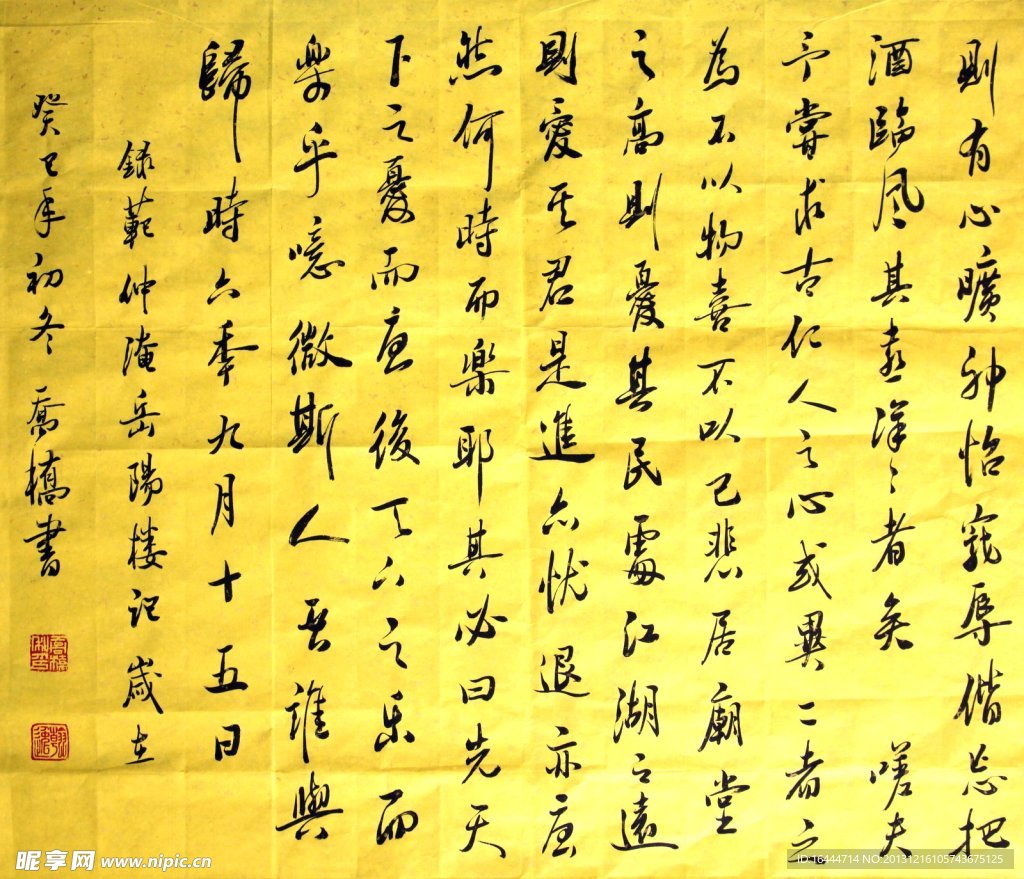 則有心曠神怡寵辱偕忘把
酒臨风其喜洋〻者矣 嗟夫
予嘗求古仁人之心或異二者之
為不以物喜不以己悲居廟堂
之高則憂其民處江湖之遠
則憂其君是進亦忧退亦憂
然何時而樂耶其必曰先天
下之憂而憂後天下之乐而
樂乎噫微斯人吾誰與
歸時六年九月十五日
録範仲淹岳陽楼记 歲在
癸巳年初冬 喬橋書
昵享网 www.nipic.cn
ID:16444714 NO:20131216105743675125